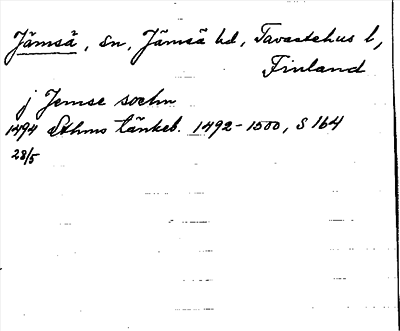 Jämsä, sn, Jämsä hd, Tavastehus l,
Finland
j Jemse sochn
1494 Sthms tänkeb. 1492-1500, s 164
28/5